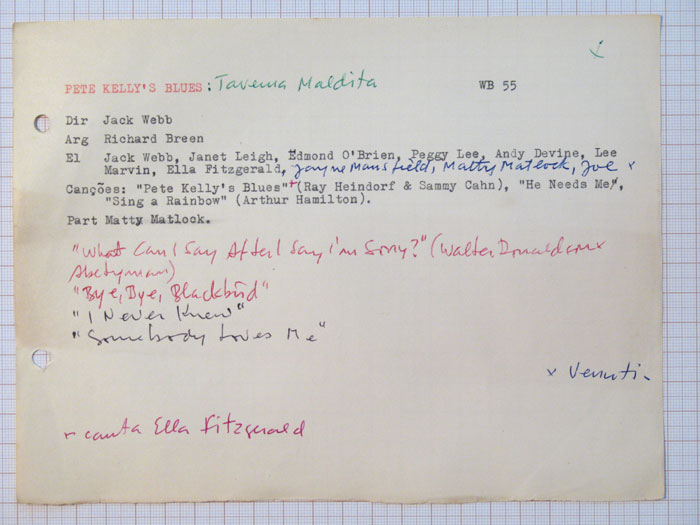 PETE KELLY'S BLUES: Taverna Maldita WB 55
Dir Jack Webb
Arg Richard Breen
El Jack Webb, Janet Leigh, Edmond O'Brien, Peggy Lee, Andy Devine, Lee
Marvin, Ella Fitzgerald, Jayne Mansfield, Matty Matlock, Joe x
Canções: "Pete Kelly's Blues"+(Ray Heindorf & Sammy Cahn), "He Needs Me",
"Sing a Rainbow" (Arthur Hamilton).
Part Matty Matlock.
"What Can I Say After I Say I'm Sorry?" (Walter Donaldson x
Abe Lyman)
"Bye, Bye, Blackbird"
"I Never Knew"
"Somebody Loves Me"
x Venuti-
+ canta Ella Fitzgerald